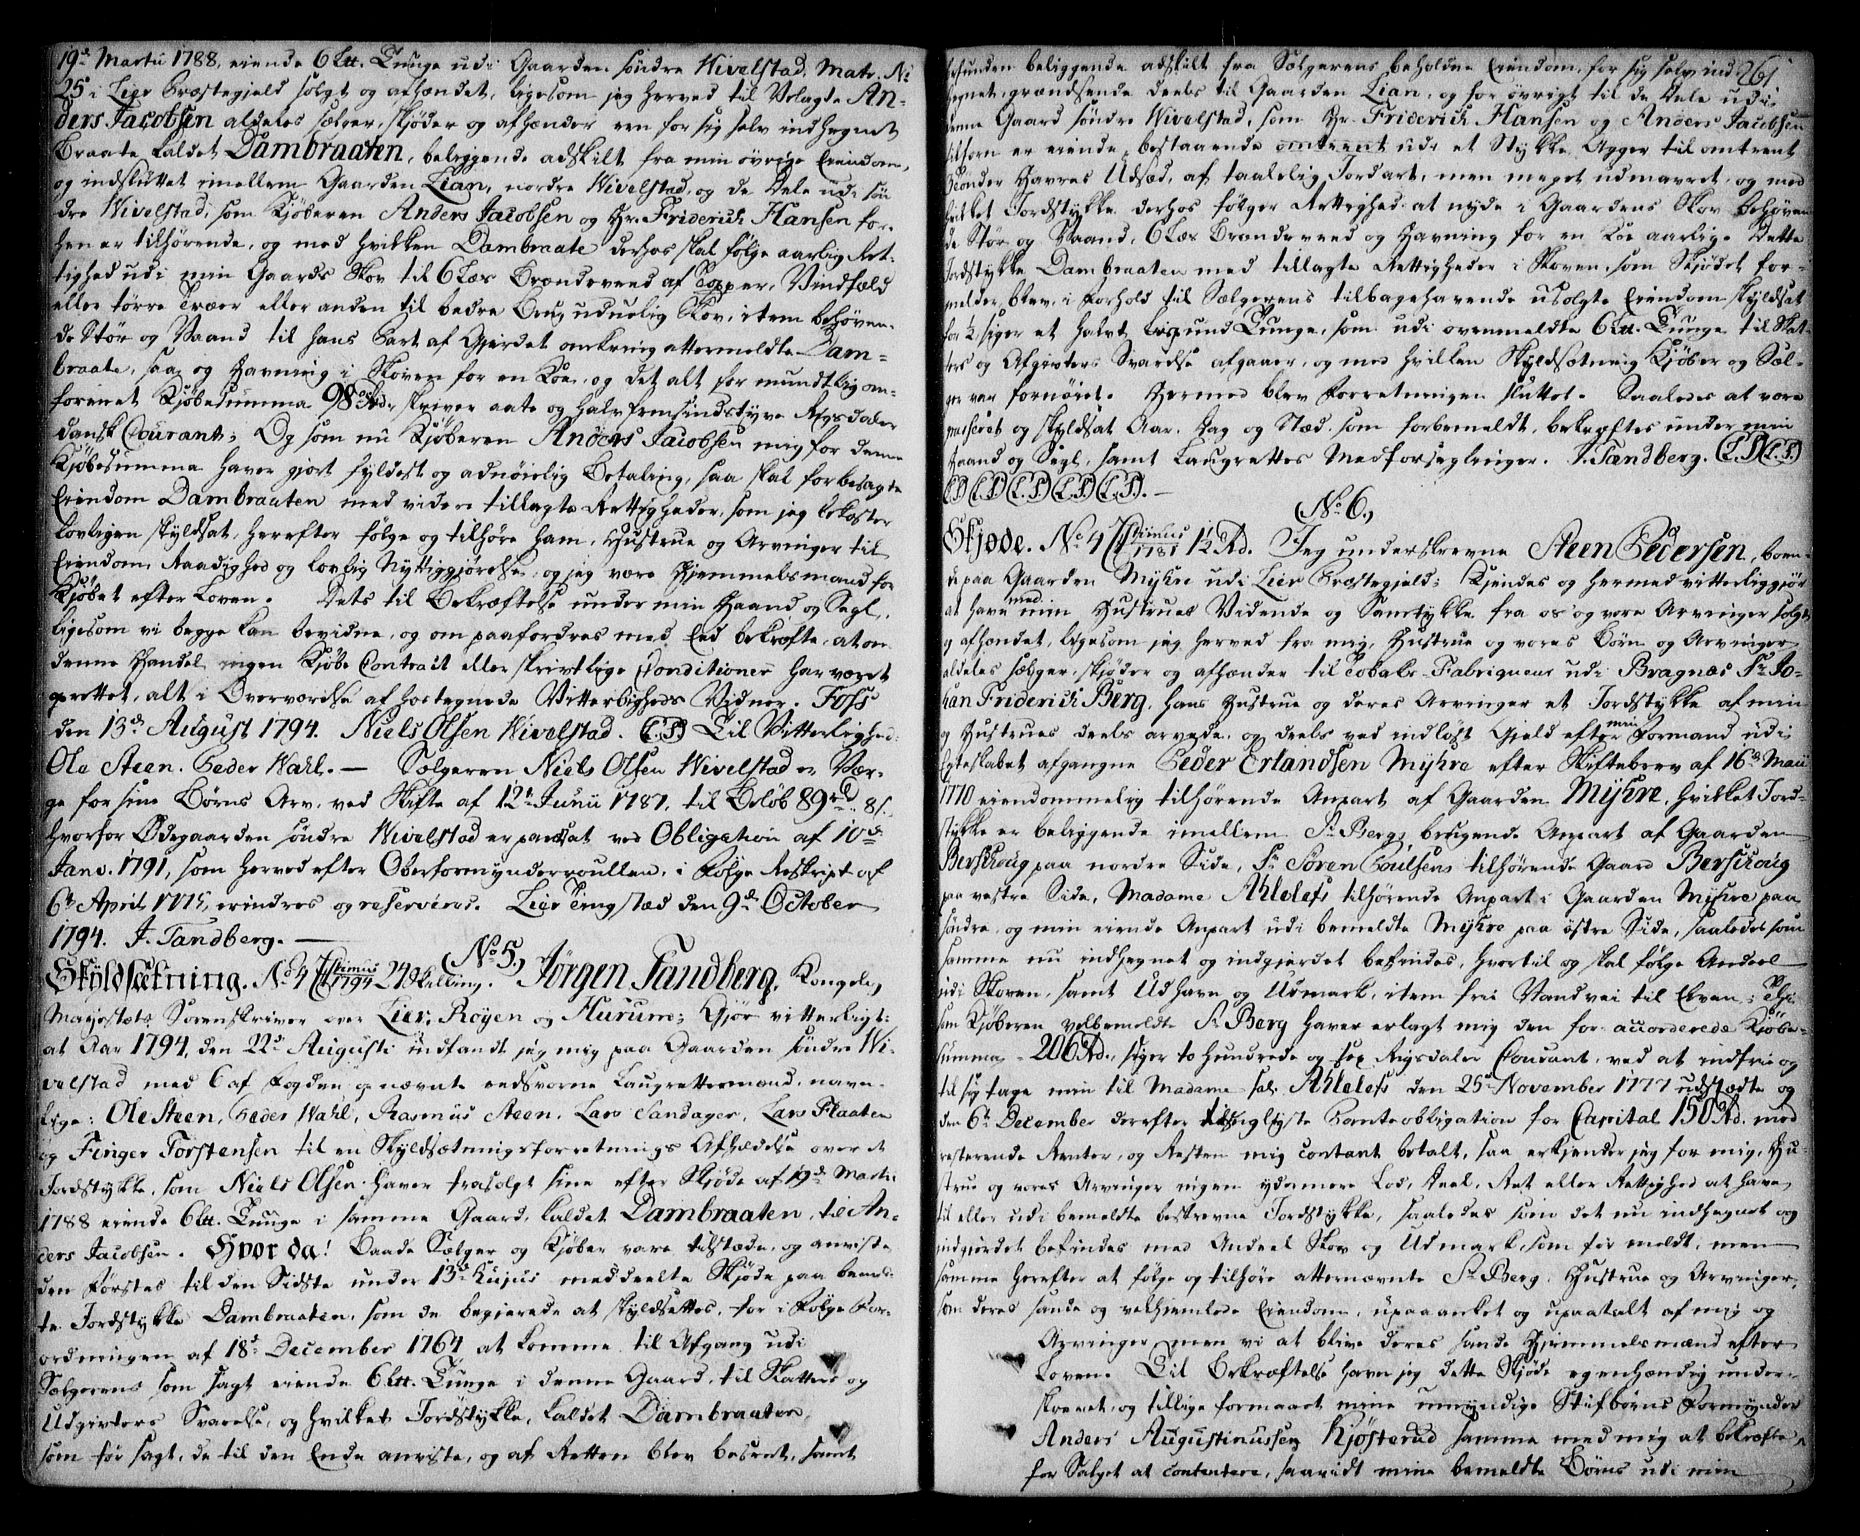 19d Martii 1788, eiende 6 Ltt. Tunge udi Gaarden söndre Wivelstad, Matr. No
25 i Lier Præstegjeld solgt og afhændet, ligesom jeg herved til Velagte An-
ders Jacobsen aldeles sælger, skjöder og afhænder een for sig selv indhegnet
Braate kaldet Dambraaten, beliggende adskilt fra min övrige Eiendom,
og indsluttet imellem Gaarden Lian, nordre Wivelstad, og de Dele udi sön
dre Wivelstad, som Kjöberen Anders Jacobsen og Hr. Friderich Hansen for-
hen er tilhörende, og med hvilken Dambraate derhos skal fölge aarlig Ret-
tighed udi min Gaards Skov til 6 Læs Brændeveed af Topper, Vindfæld
eller törre Træer eller anden til bedre Brug uduelig Skov, item behöven-
de Stör og Vaand til hans Part af Gjerdet omkring attermeldte Dam-
braate, saa og Havning i Skoven for en Koe, og det alt for mundtlig om-
forenet Kjöbesumma 98 Rdr. skriver aate og halvfemsindstyve Rigsdaler
dansk Courant; Og som nu Kjöberen Anders Jacobsen mig for denne
Kjöbesumma haver gjort fyldest og adnöielig Betaling, saa skal forbesagte
Eiendom Dambraaten med videre tillagte Rettigheder, som jeg bekoster
lovligen skyldsat, herefter fölge og tilhöre ham, Hustrue og Arvinger til
Eiendom, Raadighed og lovlig Nyttiggjörelse, og jeg være Hjemmelsmand for
Kjöbet efter Loven. Dets til Bekræftelse under min Haand og Segl,
ligesom vi begge kan bevidne, og om paafordres med Eed bekræfte, at om
denne Handel ingen Kjöbe Contract eller skriftlige Conditioner har været
oprettet, alt i Overværelse af hostegnede Vitterligheds Vidner. Foss
den 13d August 1794. Niels Olsen Wivelstad. (L.S.) Til Vitterlighed:
Ole Steen. Peder Wahl. — Sælgeren Niels Olsen Wivelstad er Vær-
ge for sine Börns Arv, ved Skifte af 12te Junii 1787, til Belöb 89 rd 8 s.
hvorfor Ödegaarden söndre Wivelstad er pandsat ved Obligation af 10de
Janv. 1791, som herved efter Oberformynderroullen, i Fölge Reskript af
6te April 1775, erindres og reserveres. Lier Tingstæd den 9de October
1794. J. Tandberg. —
No 5.,
Skyldsætning. No 4 1794 24 Skilling. Jörgen Tandberg, Kongelig
Majestæts Sorenskriver over Lier, Röyen og Hurum; Gjör vitterligt:
at Aar 1794, den 22d Augusti indfandt jeg mig paa Gaarden söndre Wi-
velstad med 6 af Fogden opnævnte eedsvorne Laugrettesmænd, navn-
lige: Ole Steen, Peder Wahl, Rasmus Steen, Lars Sandager, Lars Flaaten
og Finger Torstensen til en Skyldsætningsforretnings Afholdelse over et
Jordstykke, som Niels Olsen haver frasolgt sine efter Skjöde af 19d Martii
1788 eiende 6 Ltt. Tunge i samme Gaard, kaldet Dambraaten, til An-
ders Jacobsen. Hvor da! Baade Sælger og Kjöber vare tilstæde, og anviste
den Förstes til den Sidste under 13d hujus meddeelte Skjöde paa bemel-
te Jordstykke Dambraaten, som de begjerede at skyldsettes, for i Fölge For-
ordningen af 18d December 1764 at komme til Afgang udi
Sælgerens som sagt eiende 6 Ltt. Tunge i denne Gaard, til Skatters og
Udgivters Svarelse, og hvilket Jordstykke, kaldet Dambraaten,
som för sagt, de til den Ende anviste, og af Retten blev besret, samt
261
befunden beliggende adskilt fra Sælgerens beholdne Eiendom, for sig selv ind
hegnet, grændsende deels til Gaarden Lian, og for övrigt til de Dele udi
denne Gaard söndre Wivelstad, som Hr. Friderich Hansen og Anders Jacobsen
tilforn er eiende, bestaaende omtrent udi et Stykke Agger til omtrent
Tönder Havres Udsæd, af taalelig Jordart, men meget udmavret, og med
hvilket Jordstykke derhos fölger Rettighed at nyde i Gaardens Skov behöven
de Stör og Vaand, 6 Læs Brændeveed og Havning for en Koe aarlig. Dette
Jordstykke Dambraaten med tillagte Rettigheder i Skoven, som Skjödet for-
melder, blev, i Forhold til Sælgerens tilbagehavende usolgte Eiendom skyldsat
for ½, siger et halvt Lispund Tunge, som udi ovenmeldte 6 Ltt. Tunge til Skat-
ters og Afgivters Svarelse afgaaer, og med hvilken Skyldsætning Kjöber og Sæl-
ger var fornöiet. Hermed blev Forretningen sluttet. Saaledes at være
passeret og skyldsat Aar, Dag og Stæd, som forbemeldt, bekræftes under min
Haand og Segl, samt Laugrettes Medforseglinger. J. Tandberg. (L.S.) (L.S.)
(L.S.) (L.S.) (L.S.) (L.S.) —
No 6.,
Skjöde. No 4 1781 1½ Rd. Jeg underskrevne Steen Pedersen, boen-
de paa Gaarden Myhre udi Lier Præstegjeld; Kjendes og hermed vitterliggjör
at have med min Hustrues Vidende og Samtykke fra os og vore Arvinger solgt
og afhændet, ligesom jeg herved fra mig, Hustrue og vores Börn og Arvinger
aldeles sælger, skjöder og afhænder til Tobaks-Fabriqueur udi Bragnæs Sr. Jo-
han Friderich Berg, hans Hustrue og deres Arvinger et Jordstykke af min
og Hustrues deels arvede, og deels ved indlöst Gjeld efter min Formand udi
Egteskabet afgangne Peder Erlandsen Myhre efter Skiftebrev af 16de Maii
1770 eiendommelig tilhörende Anpart af Gaarden Myhre, hvilket Jord-
stykke er beliggende imellem Sr. Bergs brugende Anpart af Gaarden
Berschoug paa nordre Side, Sr. Sören Poulsens tilhörende Gaard Berschoug
paa vestre Side, Madame Ahlelefs tilhörende Anpart i Gaarden Myhre paa
söndre, og min eiende Anpart udi bemeldte Myhre paa östre Side, saaledes som
samme nu indhegnet og indgjerdet befindes, hvortil og skal fölge Andeel
udi Skoven, samt Udhavn og Udmark, item fri Vandvei til Elven;
som Kjöberen velbemeldte Sr. Berg haver erlagt mig den for accorderede Kjöbe-
summa 206 Rd., siger to Hundrede og sex Rigsdaler Courant, ved at indfrie og
til sig tage min til Madame sal. Ahlelefs den 25d November 1777 udstædte og
den 6te December derefter tinglyste Panteobligation for Capital 150 Rd. med
resterende Renter, og Resten mig contant betalt, saa erkjender jeg for mig, Hu-
strue og vores Arvinger ingen ydermere Lod, Deel, Ret eller Rettighed at have
til eller udi bemeldte beskrevne Jordstykke, saaledes som det nu indhegnet og
indgjerdet befindes med Andeel Skov og Udmark som för meldt, men
samme herefter at fölge og tilhöre atternævnte Sr. Berg, Hustrue og Arvinger,
som deres sande og velhjemlede Eiendom, upaaanket og upaatalt af mig og
Arvinger, men vi at blive deres sande Hjemmelsmænd efter
Loven. Til Bekræftelse haver jeg dette Skjöde egenhændig under-
skrevet, og tillige formaaet mine umyndige Stifbörns Formynder
Anders Augustinussen Kjösterud samme med mig at bekræfte,
for Salget at contentere, saavidt mine bemeldte Börns udi min